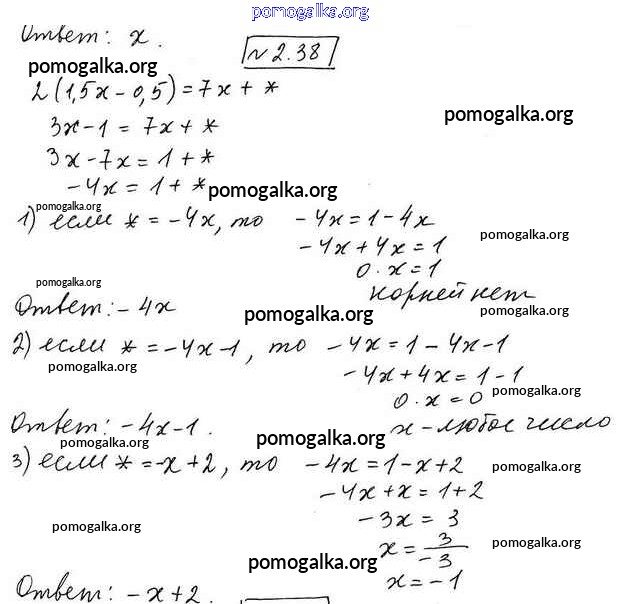 pomogalka.org
Ответ: x.
№ 2.38
pomogalka.org
2(1,5x-0,5)=7x+*
pomogalka.org
3x-1=7x+*
3x-7x=1+*
-4x=1+*
pomogalka.org
pomogalka.org
1) если *=-4x, то -4x=1-4x
pomogalka.org
-4x+4x=1
0·x=1
pomogalka.org
корней нет
Ответ: -4x
pomogalka.org
pomogalka.org
2) если *=-4x-1, то -4x=1-4x-1
pomogalka.org
-4x+4x=1-1
pomogalka.org
0·x=0
Ответ: -4x-1.
x-любое число
pomogalka.org
pomogalka.org
3) если *=-x+2, то -4x=1-x+2
pomogalka.org
-4x+x=1+2
-3x=3
pomogalka.org
x=3/-3
pomogalka.org
pomogalka.org
x=-1
Ответ: -x+2.